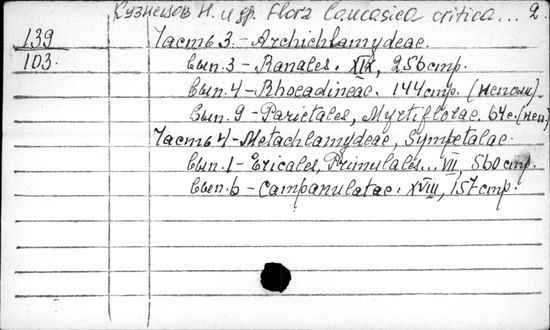 Кузнецов Н. и др. Flora Caucasica critica... 2.
139 Часть 3. - Archichlamydeae.
103. Вып. 3 - Ranales. XIX, 256 стр.
Вып. 4 - Rhoeadineae. 144 стр. (неполн).
Вып. 9 - Parietales, Myrtiflorae. 64 с. (неп.)
Часть 4 - Metachlamydeae, Sympetalae.
Вып. 1 - Ericales, Primulales... VII, 560 стр.
Вып. 6 - Campanulatae. XVIII, 157 стр.